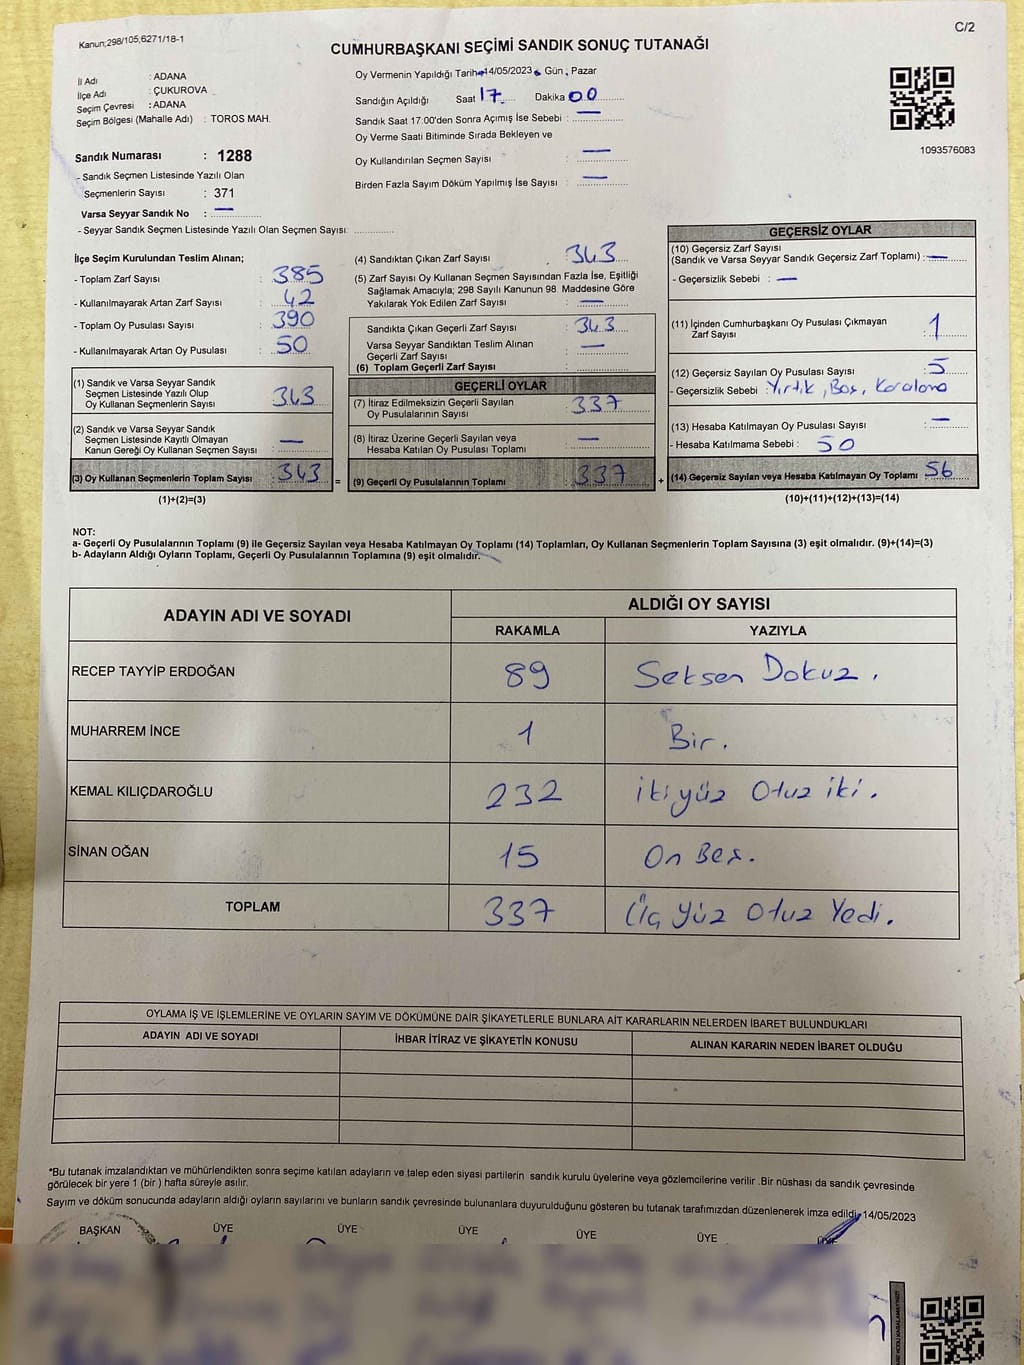 C/2
Kanun;298/105;6271/18-1
CUMHURBAŞKANI SEÇİMİ SANDIK SONUÇ TUTANAĞI
İl Adı : ADANA
İlçe Adı : ÇUKUROVA
Seçim Çevresi : ADANA
Seçim Bölgesi (Mahalle Adı) : TOROS MAH.
Sandık Numarası : 1288
- Sandık Seçmen Listesinde Yazılı Olan
Seçmenlerin Sayısı : 371
Varsa Seyyar Sandık No : —
- Seyyar Sandık Seçmen Listesinde Yazılı Olan Seçmen Sayısı:
Oy Vermenin Yapıldığı Tarih 14/05/2023 Gün , Pazar
Sandığın Açıldığı Saat 17 Dakika 00
Sandık Saat 17:00'den Sonra Açımış İse Sebebi : —
Oy Verme Saati Bitiminde Sırada Bekleyen ve
Oy Kullandırılan Seçmen Sayısı : —
Birden Fazla Sayım Döküm Yapılmış İse Sayısı : —
1093576083
İlçe Seçim Kurulundan Teslim Alınan;
- Toplam Zarf Sayısı : 385
- Kullanılmayarak Artan Zarf Sayısı : 42
- Toplam Oy Pusulası Sayısı : 390
- Kullanılmayarak Artan Oy Pusulası : 50
(1) Sandık ve Varsa Seyyar Sandık
Seçmen Listesinde Yazılı Olup
Oy Kullanan Seçmenlerin Sayısı : 343
(2) Sandık ve Varsa Seyyar Sandık
Seçmen Listesinde Kayıtlı Olmayan
Kanun Gereği Oy Kullanan Seçmen Sayısı : —
(3) Oy Kullanan Seçmenlerin Toplam Sayısı : 343
(1)+(2)=(3)
(4) Sandıktan Çıkan Zarf Sayısı : 343
(5) Zarf Sayısı Oy Kullanan Seçmen Sayısından Fazla İse, Eşitliği
Sağlamak Amacıyla; 298 Sayılı Kanunun 98. Maddesine Göre
Yakılarak Yok Edilen Zarf Sayısı : —
Sandıkta Çıkan Geçerli Zarf Sayısı : 343
Varsa Seyyar Sandıktan Teslim Alınan
Geçerli Zarf Sayısı : —
(6) Toplam Geçerli Zarf Sayısı :
GEÇERLİ OYLAR
(7) İtiraz Edilmeksizin Geçerli Sayılan
Oy Pusulalarının Sayısı : 337
(8) İtiraz Üzerine Geçerli Sayılan veya
Hesaba Katılan Oy Pusulası Toplamı : —
= (9) Geçerli Oy Pusulalarının Toplamı : 337
GEÇERSİZ OYLAR
(10) Geçersiz Zarf Sayısı
(Sandık ve Varsa Seyyar Sandık Geçersiz Zarf Toplamı) : —
- Geçersizlik Sebebi : —
(11) İçinden Cumhurbaşkanı Oy Pusulası Çıkmayan
Zarf Sayısı : 1
(12) Geçersiz Sayılan Oy Pusulası Sayısı : 5
- Geçersizlik Sebebi : Yırtık, Boş, Karalama
(13) Hesaba Katılmayan Oy Pusulası Sayısı : —
- Hesaba Katılmama Sebebi : 50
+ (14) Geçersiz Sayılan veya Hesaba Katılmayan Oy Toplamı : 56
(10)+(11)+(12)+(13)=(14)
NOT:
a- Geçerli Oy Pusulalarının Toplamı (9) ile Geçersiz Sayılan veya Hesaba Katılmayan Oy Toplamı (14) Toplamları, Oy Kullanan Seçmenlerin Toplam Sayısına (3) eşit olmalıdır. (9)+(14)=(3)
b- Adayların Aldığı Oyların Toplamı, Geçerli Oy Pusulalarının Toplamına (9) eşit olmalıdır.
ADAYIN ADI VE SOYADI ALDIĞI OY SAYISI
RAKAMLA YAZIYLA
RECEP TAYYİP ERDOĞAN 89 Seksen Dokuz.
MUHARREM İNCE 1 Bir.
KEMAL KILIÇDAROĞLU 232 iki yüz Otuz iki.
SİNAN OĞAN 15 On Beş.
TOPLAM 337 Üç Yüz Otuz Yedi.
OYLAMA İŞ VE İŞLEMLERİNE VE OYLARIN SAYIM VE DÖKÜMÜNE DAİR ŞİKAYETLERLE BUNLARA AİT KARARLARIN NELERDEN İBARET BULUNDUKLARI
ADAYIN ADI VE SOYADI İHBAR İTİRAZ VE ŞİKAYETİN KONUSU ALINAN KARARIN NEDEN İBARET OLDUĞU
*Bu tutanak imzalandıktan ve mühürlendikten sonra seçime katılan adayların ve talep eden siyasi partilerin sandık kurulu üyelerine veya gözlemcilerine verilir .Bir nüshası da sandık çevresinde
görülecek bir yere 1 (bir ) hafta süreyle asılır.
Sayım ve döküm sonucunda adayların aldığı oyların sayılarını ve bunların sandık çevresinde bulunanlara duyurulduğunu gösteren bu tutanak tarafımızdan düzenlenerek imza edildi. 14/05/2023
BAŞKAN ÜYE ÜYE ÜYE ÜYE ÜYE ÜYE